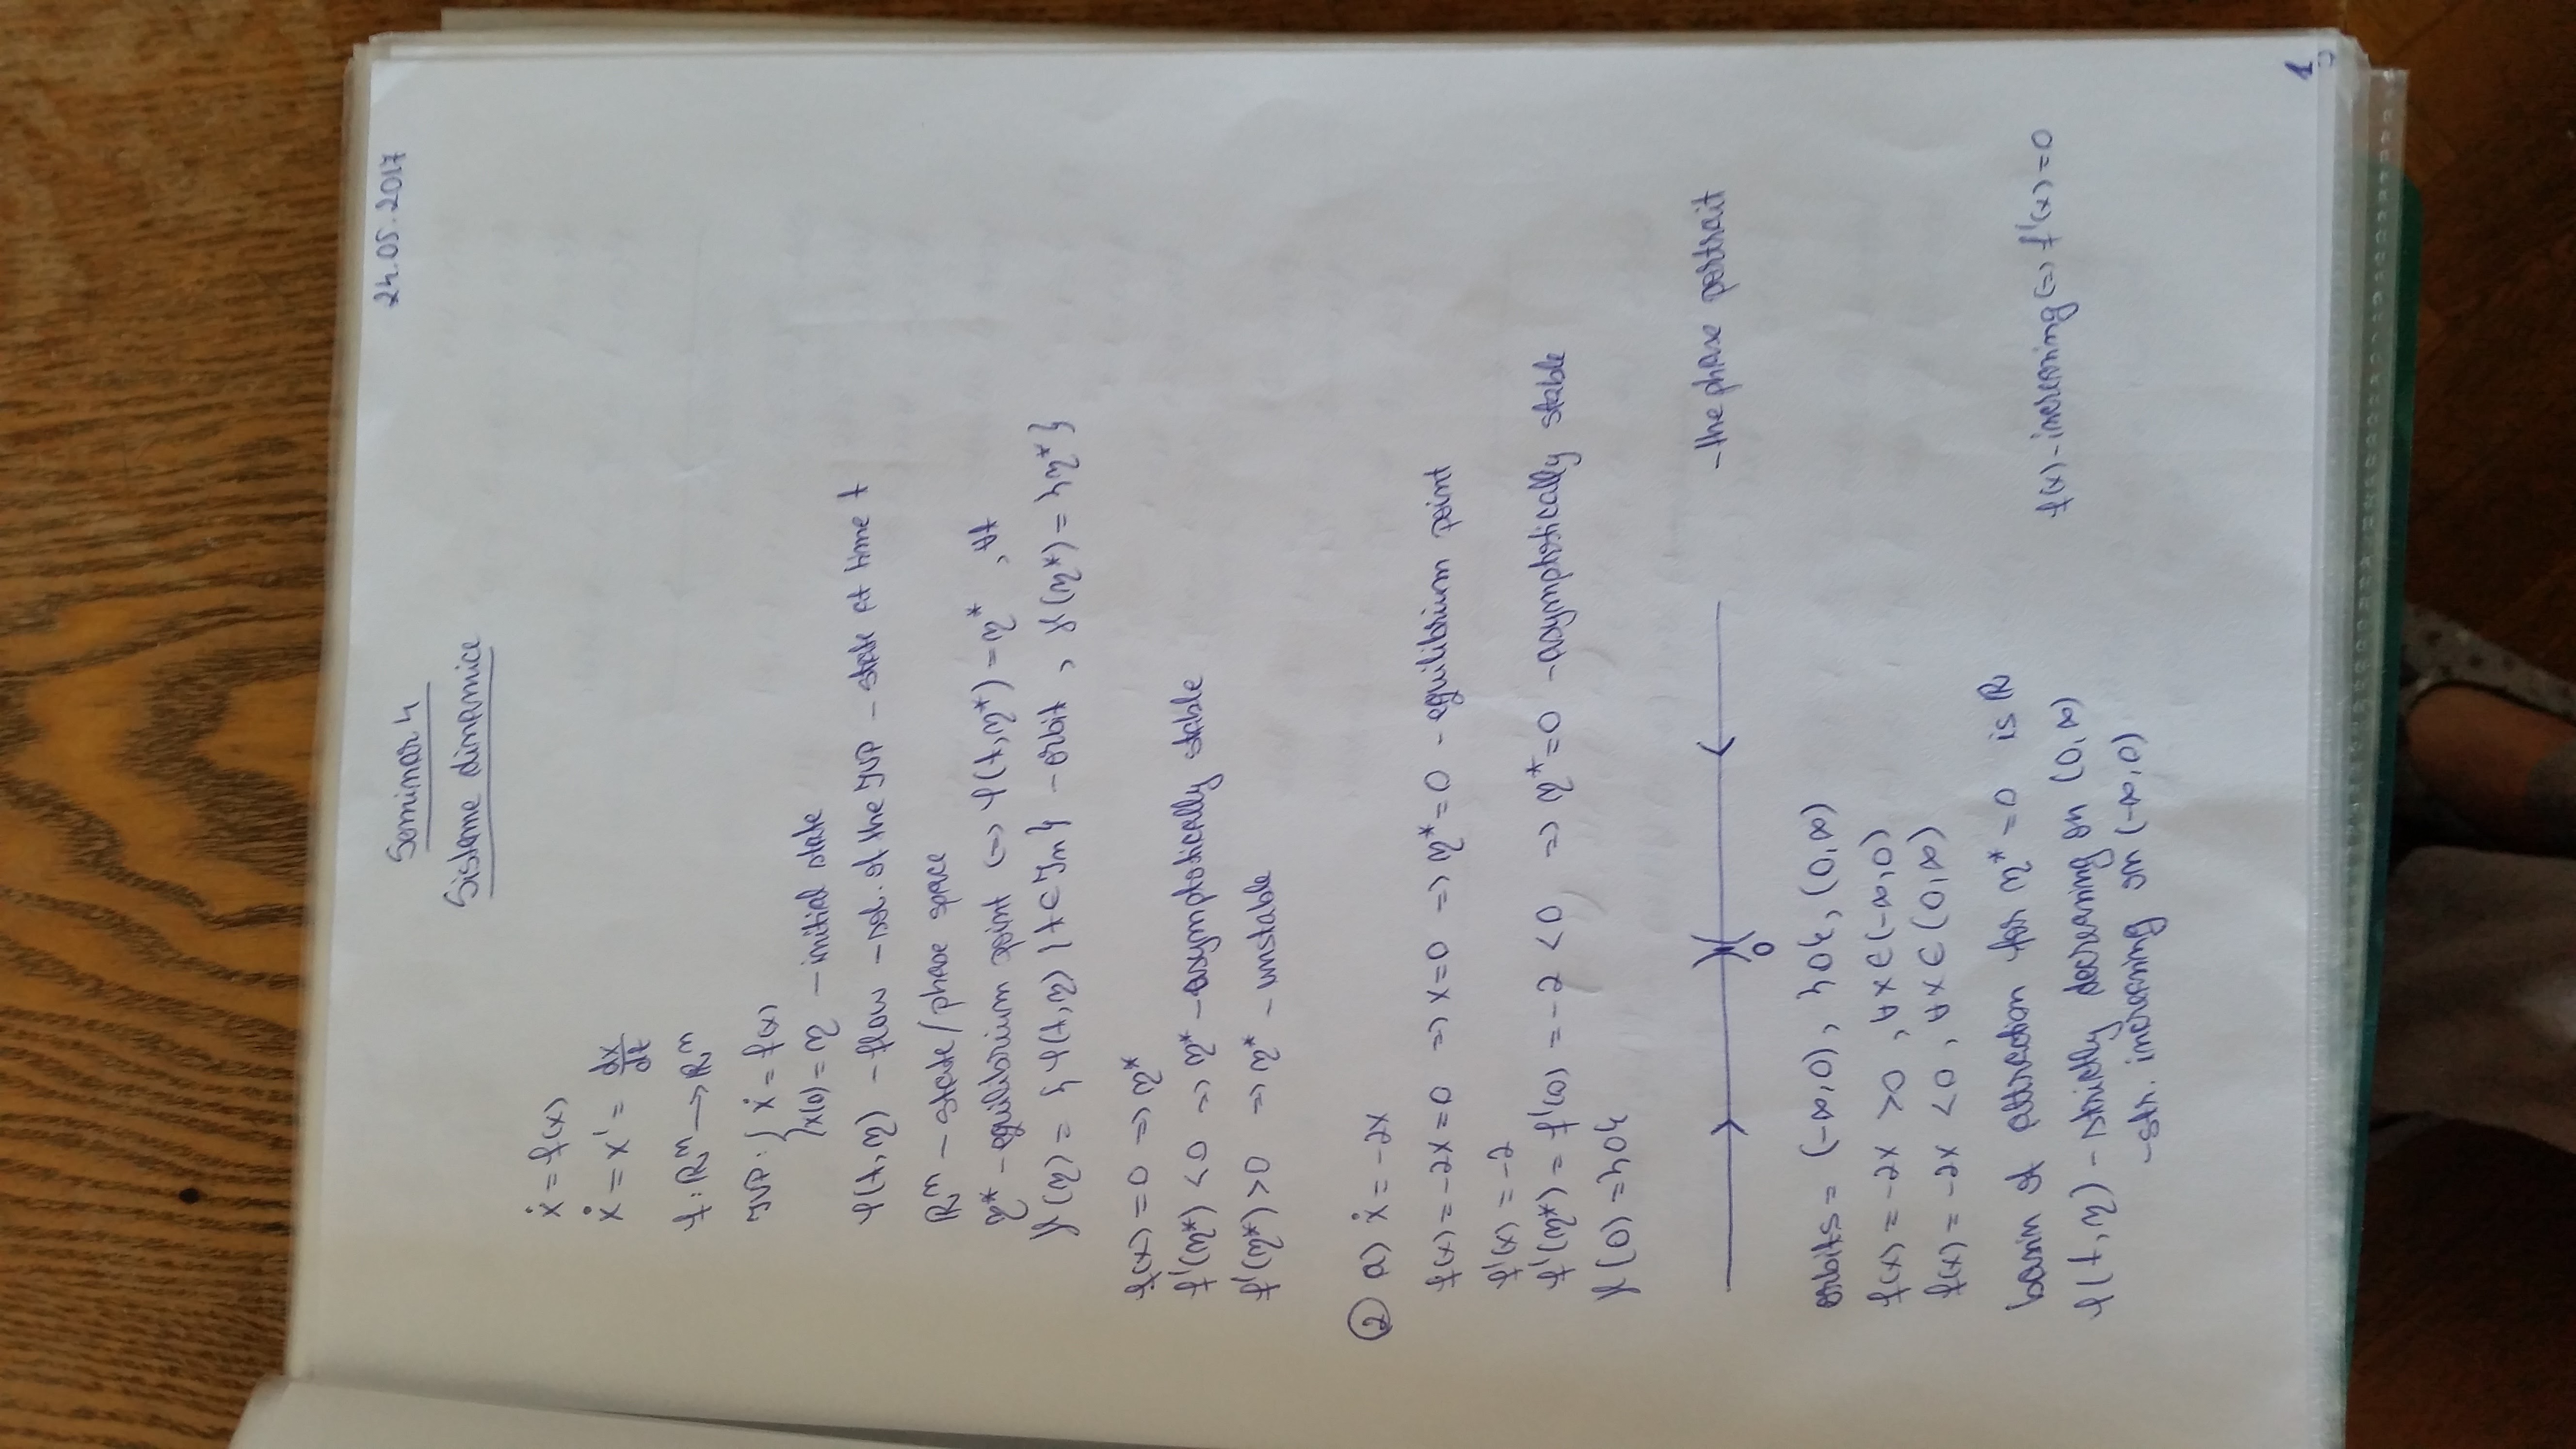 24.05.2017
Seminar 4
Sisteme dinamice
ẋ = f(x)
ẋ = x' = dx/dt
f: ℝⁿ → ℝⁿ
IVP: { ẋ = f(x)
x(0) = η – initial state
φ(t, η) – flow – sol. of the IVP – state at time t
ℝⁿ – state/phase space
η* – equilibrium point <=> φ(t, η*) = η* , ∀t
γ(η) = {φ(t, η) | t ∈ Iη} – orbit , γ(η*) = {η*}
f(x) = 0 => η*
f'(η*) < 0 => η* – asymptotically stable
f'(η*) > 0 => η* – unstable
② a) ẋ = -2x
f(x) = -2x = 0 => x = 0 => η* = 0 – equilibrium point
f'(x) = -2
f'(η*) = f'(0) = -2 < 0 => η* = 0 – asymptotically stable
γ(0) = {0}
– the phase portrait
0
orbits = (-∞, 0), {0}, (0, ∞)
f(x) = -2x > 0 , ∀x ∈ (-∞, 0)
f(x) = -2x < 0 , ∀x ∈ (0, ∞)
basin of attraction for η* = 0 is ℝ
f(x) – increasing <=> f'(x) = 0
φ(t, η) – strictly decreasing on (0, ∞)
– str. increasing on (-∞, 0)
1